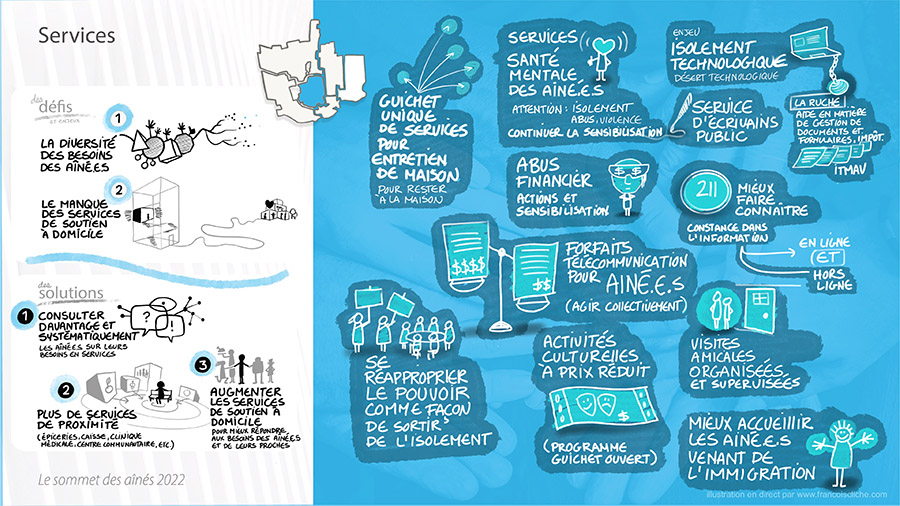 Services
des défis
ET ENJEUX
1
LA DIVERSITÉ
DES BESOINS
DES AÎNÉ.E.S
2
LE MANQUE
DES SERVICES
DE SOUTIEN
À DOMICILE
des solutions
1
CONSULTER
DAVANTAGE ET
SYSTÉMATIQUEMENT
LES AÎNÉ.E.S SUR LEURS
BESOINS EN SERVICES
? !
2
PLUS DE SERVICES
DE PROXIMITÉ
(ÉPICERIES, CAISSE, CLINIQUE
MÉDICALE, CENTRE COMMUNAUTAIRE, ETC.)
3
AUGMENTER
LES SERVICES
DE SOUTIEN À
DOMICILE
POUR MIEUX RÉPONDRE
AUX BESOINS DES AÎNÉ.E.S
ET DE LEURS PROCHES
Le sommet des aînés 2022
GUICHET
UNIQUE
DE SERVICES
POUR
ENTRETIEN
DE MAISON
POUR RESTER
À LA MAISON
SERVICES
SANTÉ
MENTALE
DES AÎNÉ.E.S
ATTENTION : ISOLEMENT
ABUS, VIOLENCE
CONTINUER LA SENSIBILISATION
ENJEU
ISOLEMENT
TECHNOLOGIQUE
DÉSERT TECHNOLOGIQUE
SERVICE
D'ÉCRIVAINS
PUBLIC
LA RUCHE :
AIDE EN MATIÈRE
DE GESTION DE
DOCUMENTS ET
FORMULAIRES, IMPÔT.
ITMAV
ABUS
FINANCIER
ACTIONS ET
SENSIBILISATION
$ $
211
MIEUX
FAIRE
CONNAÎTRE
CONSTANCE DANS
L'INFORMATION
EN LIGNE
(ET
HORS
LIGNE
$$$$
$$
FORFAITS
TÉLÉCOMMUNICATION
POUR AÎNÉ.E.S
(AGIR COLLECTIVEMENT)
SE
RÉAPPROPRIER
LE POUVOIR
COMME FAÇON
DE SORTIR
DE L'ISOLEMENT
ACTIVITÉS
CULTURELLES
À PRIX RÉDUIT
$
(PROGRAMME
GUICHET OUVERT)
VISITES
AMICALES
ORGANISÉES
ET SUPERVISÉES
MIEUX ACCUEILLIR
LES AÎNÉ.E.S
VENANT DE
L'IMMIGRATION
illustration en direct par www.francoiscliche.com